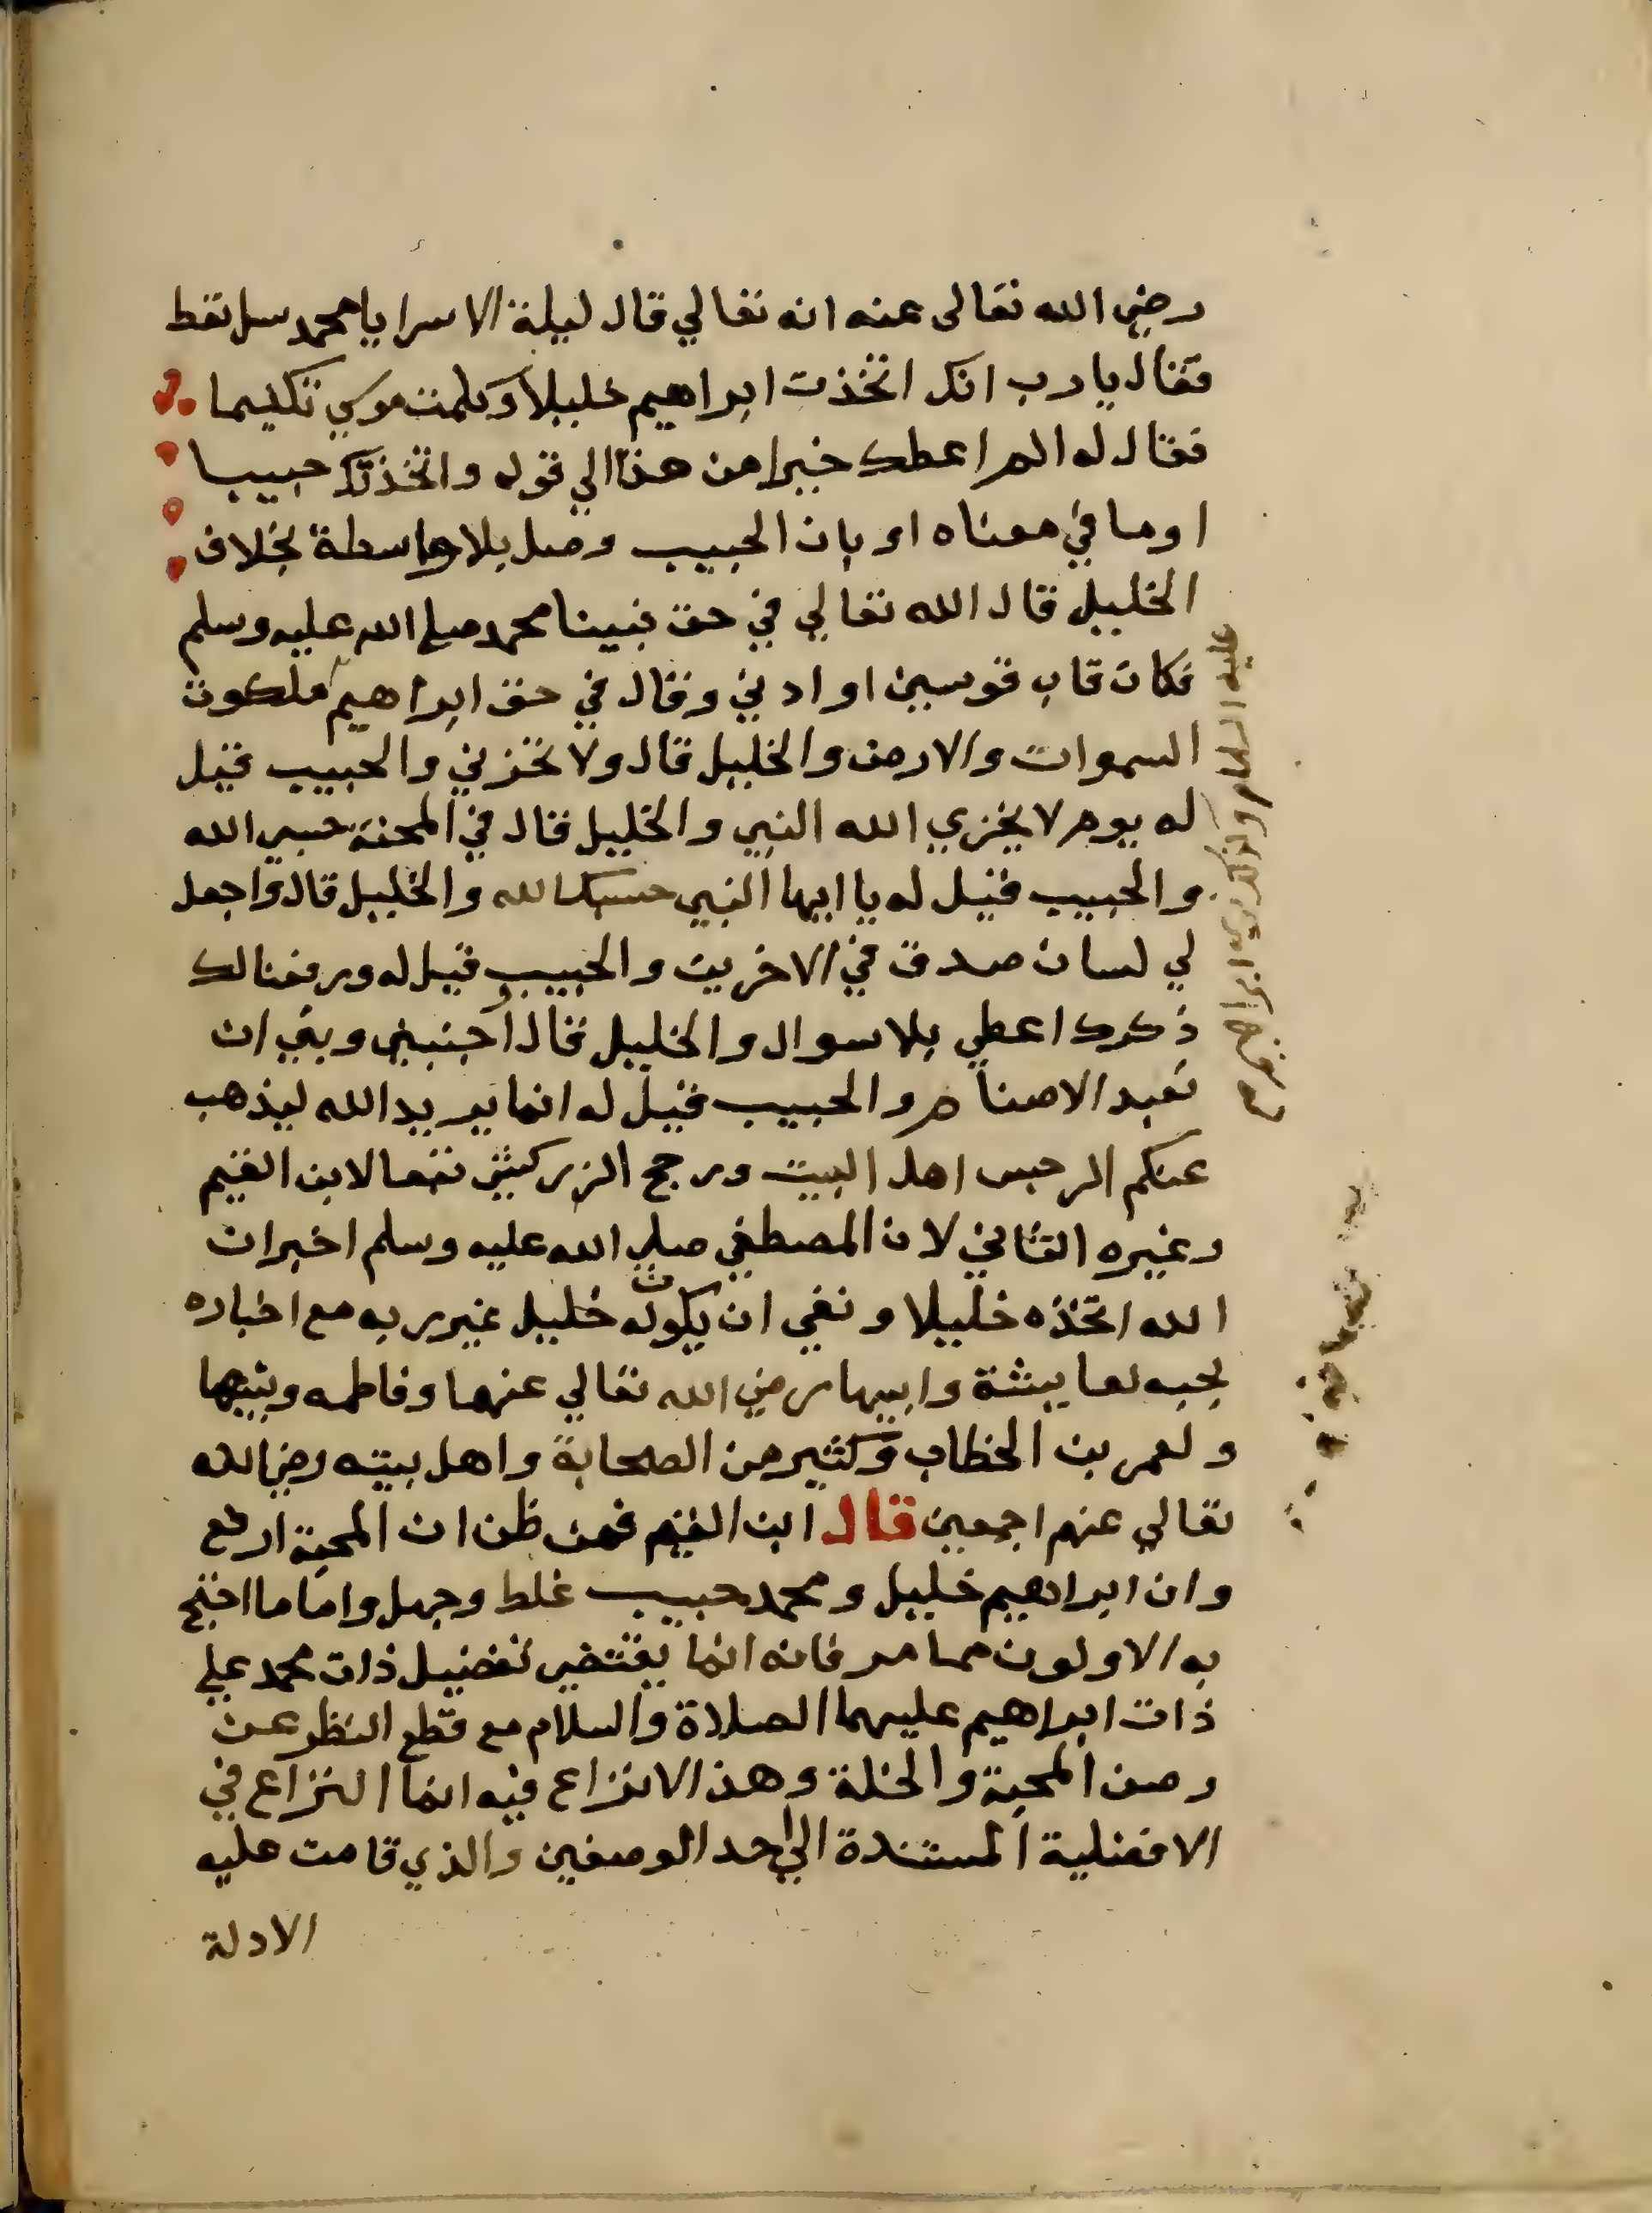 رضي الله تعالى عنه انه تعالي قال ليلة الاسرا يا محمد سل تعط
فقال يا رب انك اتخذت ابراهيم خليلا وكلمت موسي تكليما
فقال له الم اعطك خيرا من هذا الي قوله واتخذتك حبيبا
او ما في معناه او بان الحبيب وصل بلا واسطة بخلاف
الخليل قال الله تعالي في حق نبينا محمد صلي الله عليه وسلم
فكان قاب قوسين او ادني وقال في حق ابراهيم ملكوت
السموات والارض والخليل قال ولا تخزني والحبيب قيل
له يوم لا يخزي الله النبي والخليل قال في المحنة حسبي الله
والحبيب قيل له يا ايها النبي حسبك الله والخليل قال واجعل
لي لسان صدق في الاخرين والحبيب قيل له ورفعنا لك
ذكرك اعطي بلا سوال والخليل قال واجنبني وبني ان
نعبد الاصنام والحبيب قيل له انما يريد الله ليذهب
عنكم الرجس اهل البيت ورجح الزركشي تبعا لابن القيم
وغيره الثاني لان المصطفي صلي الله عليه وسلم اخبر ان
الله اتخذه خليلا ونفي ان يكون له خليل غير ربه مع اخباره
بحبه لعايشة وابيها رضي الله تعالي عنهما وفاطمه وبنيها
ولعمر بن الخطاب وكثير من الصحابة واهل بيته رضي الله
تعالي عنهم اجمعين قال ابن القيم فمن ظن ان المحبة ارفع
وان ابراهيم خليل ومحمد حبيب غلط وجهل واما ما احتج
به الاولون مما مر فانه انما يقتضي تفضيل ذات محمد علي
ذات ابراهيم عليهما الصلاة والسلام مع قطع النظر عن
وصف المحبة والخلة وهذا لا نزاع فيه انما النزاع في
الافضلية المستندة الي احد الوصفين والذي قامت عليه
الادلة
عليه السلام وكذلك نري ابراهيم